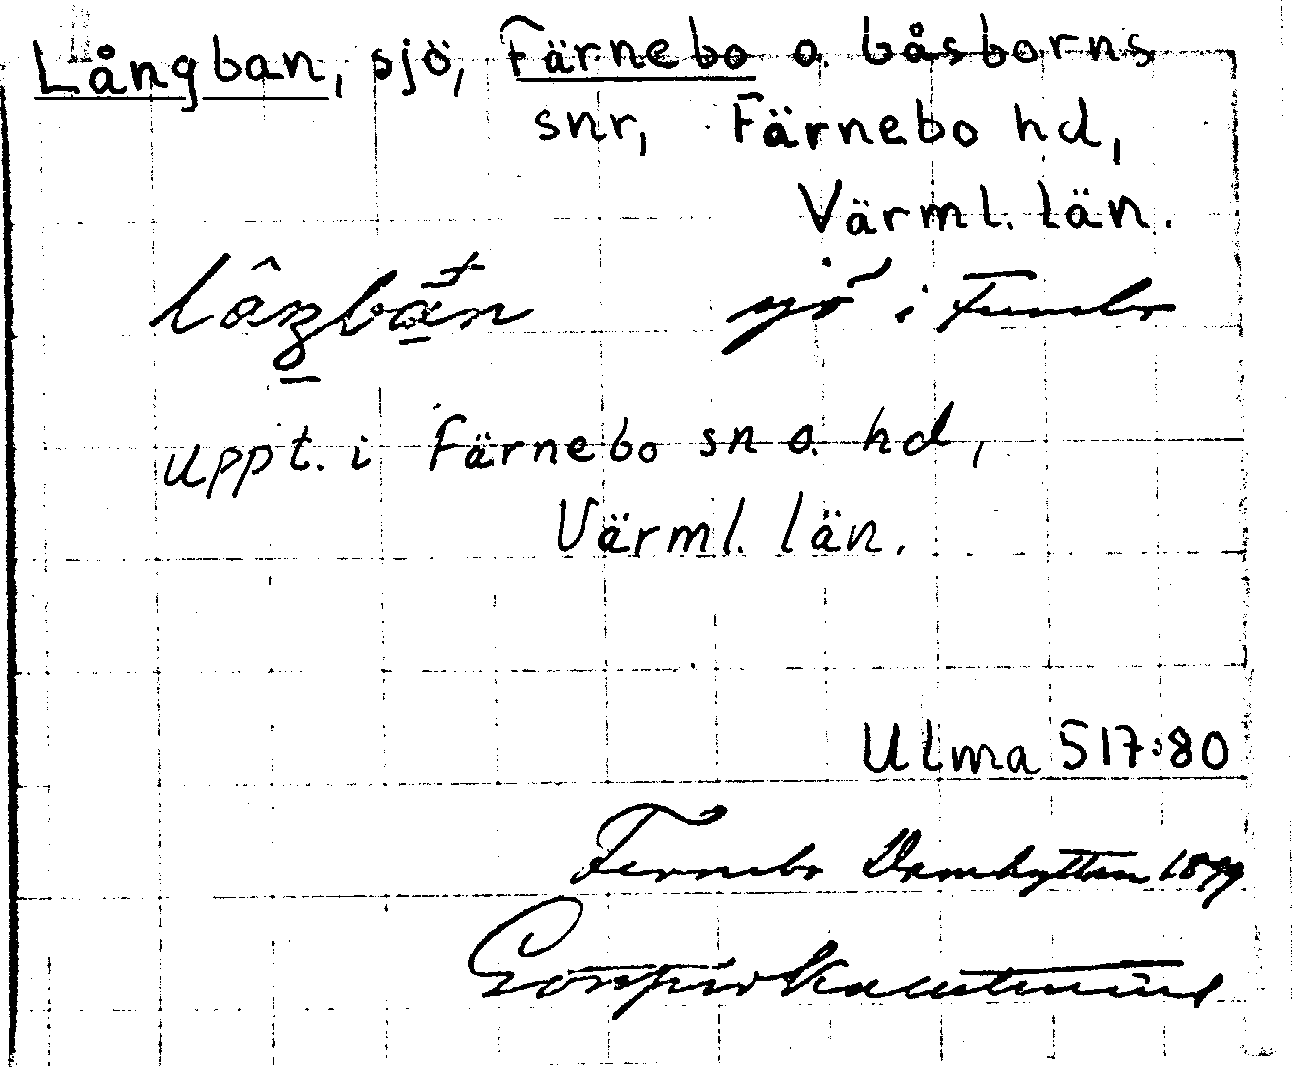 Långban, sjö, Färnebo o. Gåsborns
snr, Färnebo hd,
Värml. län.
sjö i Fernebo
uppt. i Färnebo sn o. hd,
Värml. län.
Ulma 517:80
Fernebo Damhyttan 1899